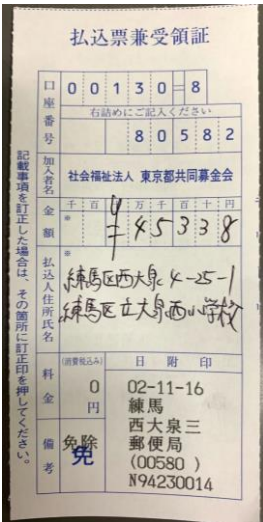 払込票兼受領証
口座番号
00130=8
右詰めにご記入ください
80582
加入者名
社会福祉法人 東京都共同募金会
金額
千 百 十 万 千 百 十 円
※
¥45338
払込人住所氏名
※
練馬区西大泉4-25-1
練馬区立大泉西小学校
料金
(消費税込み)
0円
日附印
02-11-16
練馬
西大泉三
郵便局
(00580 )
N94230014
備考
免除
免
記載事項を訂正した場合は、その箇所に訂正印を押してください。